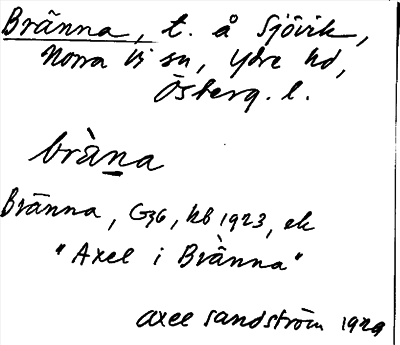 Bränna, t. å Sjövik,
Norra Vi sn, Ydre hd,
Österg. l.
bràna
Bränna, G36, hb 1923, ek
"Axel i Bränna"
Axel Sandström 1929